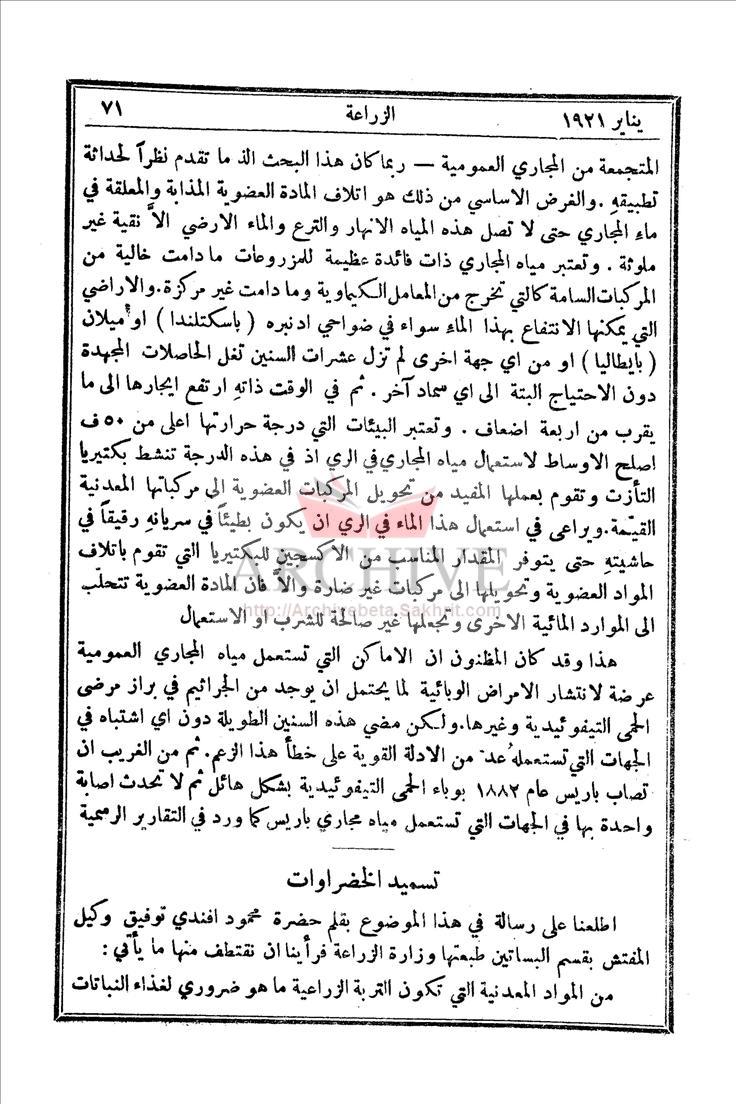 يناير ١٩٢١ الزراعة ٧١
المتجمعة من المجاري العمومية — ربما كان هذا البحث الذ ما تقدم نظراً لحداثة
تطبيقهِ . والغرض الاساسي من ذلك هو اتلاف المادة العضوية المذابة والمعلقة في
ماء المجاري حتى لا تصل هذه المياه الانهار والترع والماء الارضي الاَّ نقية غير
ملوثة . وتعتبر مياه المجاري ذات فائدة عظيمة للمزروعات ما دامت خالية من
المركبات السامة كالتي تخرج من المعامل الكيماوية وما دامت غير مركزة . والاراضي
التي يمكنها الانتفاع بهذا الماء سواء في ضواحي ادنبره ( باسكتلندا ) او ميلان
( بايطاليا ) او من اي جهة اخرى لم تزل عشرات السنين تغل الحاصلات المجهدة
دون الاحتياج البتة الى اي سماد آخر . ثم في الوقت ذاتهِ ارتفع ايجارها الى ما
يقرب من اربعة اضعاف . وتعتبر البيئات التي درجة حرارتها اعلى من ٥٠ ف
اصلح الاوساط لاستعمال مياه المجاري في الري اذ في هذه الدرجة تنشط بكتيريا
التأزت وتقوم بعملها المفيد من تحويل المركبات العضوية الى مركباتها المعدنية
القيّمة . ويراعى في استعمال هذا الماء في الري ان يكون بطيئاً في سريانهِ رقيقاً في
حاشيتهِ حتى يتوفر المقدار المناسب من الاكسجين للبكتيريا التي تقوم باتلاف
المواد العضوية وتحويلها الى مركبات غير ضارة والاَّ فان المادة العضوية تتحلّب
الى الموارد المائية الاخرى وتجعلها غير صالحة للشرب او الاستعمال
هذا وقد كان المظنون ان الاماكن التي تستعمل مياه المجاري العمومية
عرضة لانتشار الامراض الوبائية لما يحتمل ان يوجد من الجراثيم في براز مرضى
الحمى التيفوئيدية وغيرها . ولكن مضي هذه السنين الطويلة دون اي اشتباه في
الجهات التي تستعمله عُدَّ من الادلة القوية على خطأ هذا الزعم . ثم من الغريب ان
تصاب باريس عام ١٨٨٢ بوباء الحمى التيفوئيدية بشكل هائل ثم لا تحدث اصابة
واحدة بها في الجهات التي تستعمل مياه مجاري باريس كما ورد في التقارير الرسمية
تسميد الخضراوات
اطلعنا على رسالة في هذا الموضوع بقلم حضرة محمود افندي توفيق وكيل
المفتش بقسم البساتين طبعتها وزارة الزراعة فرأينا ان نقتطف منها ما يأتي :
من المواد المعدنية التي تكون التربة الزراعية ما هو ضروري لغذاء النباتات
ARCHIVE
http://Archivebeta.Sakhrit.com